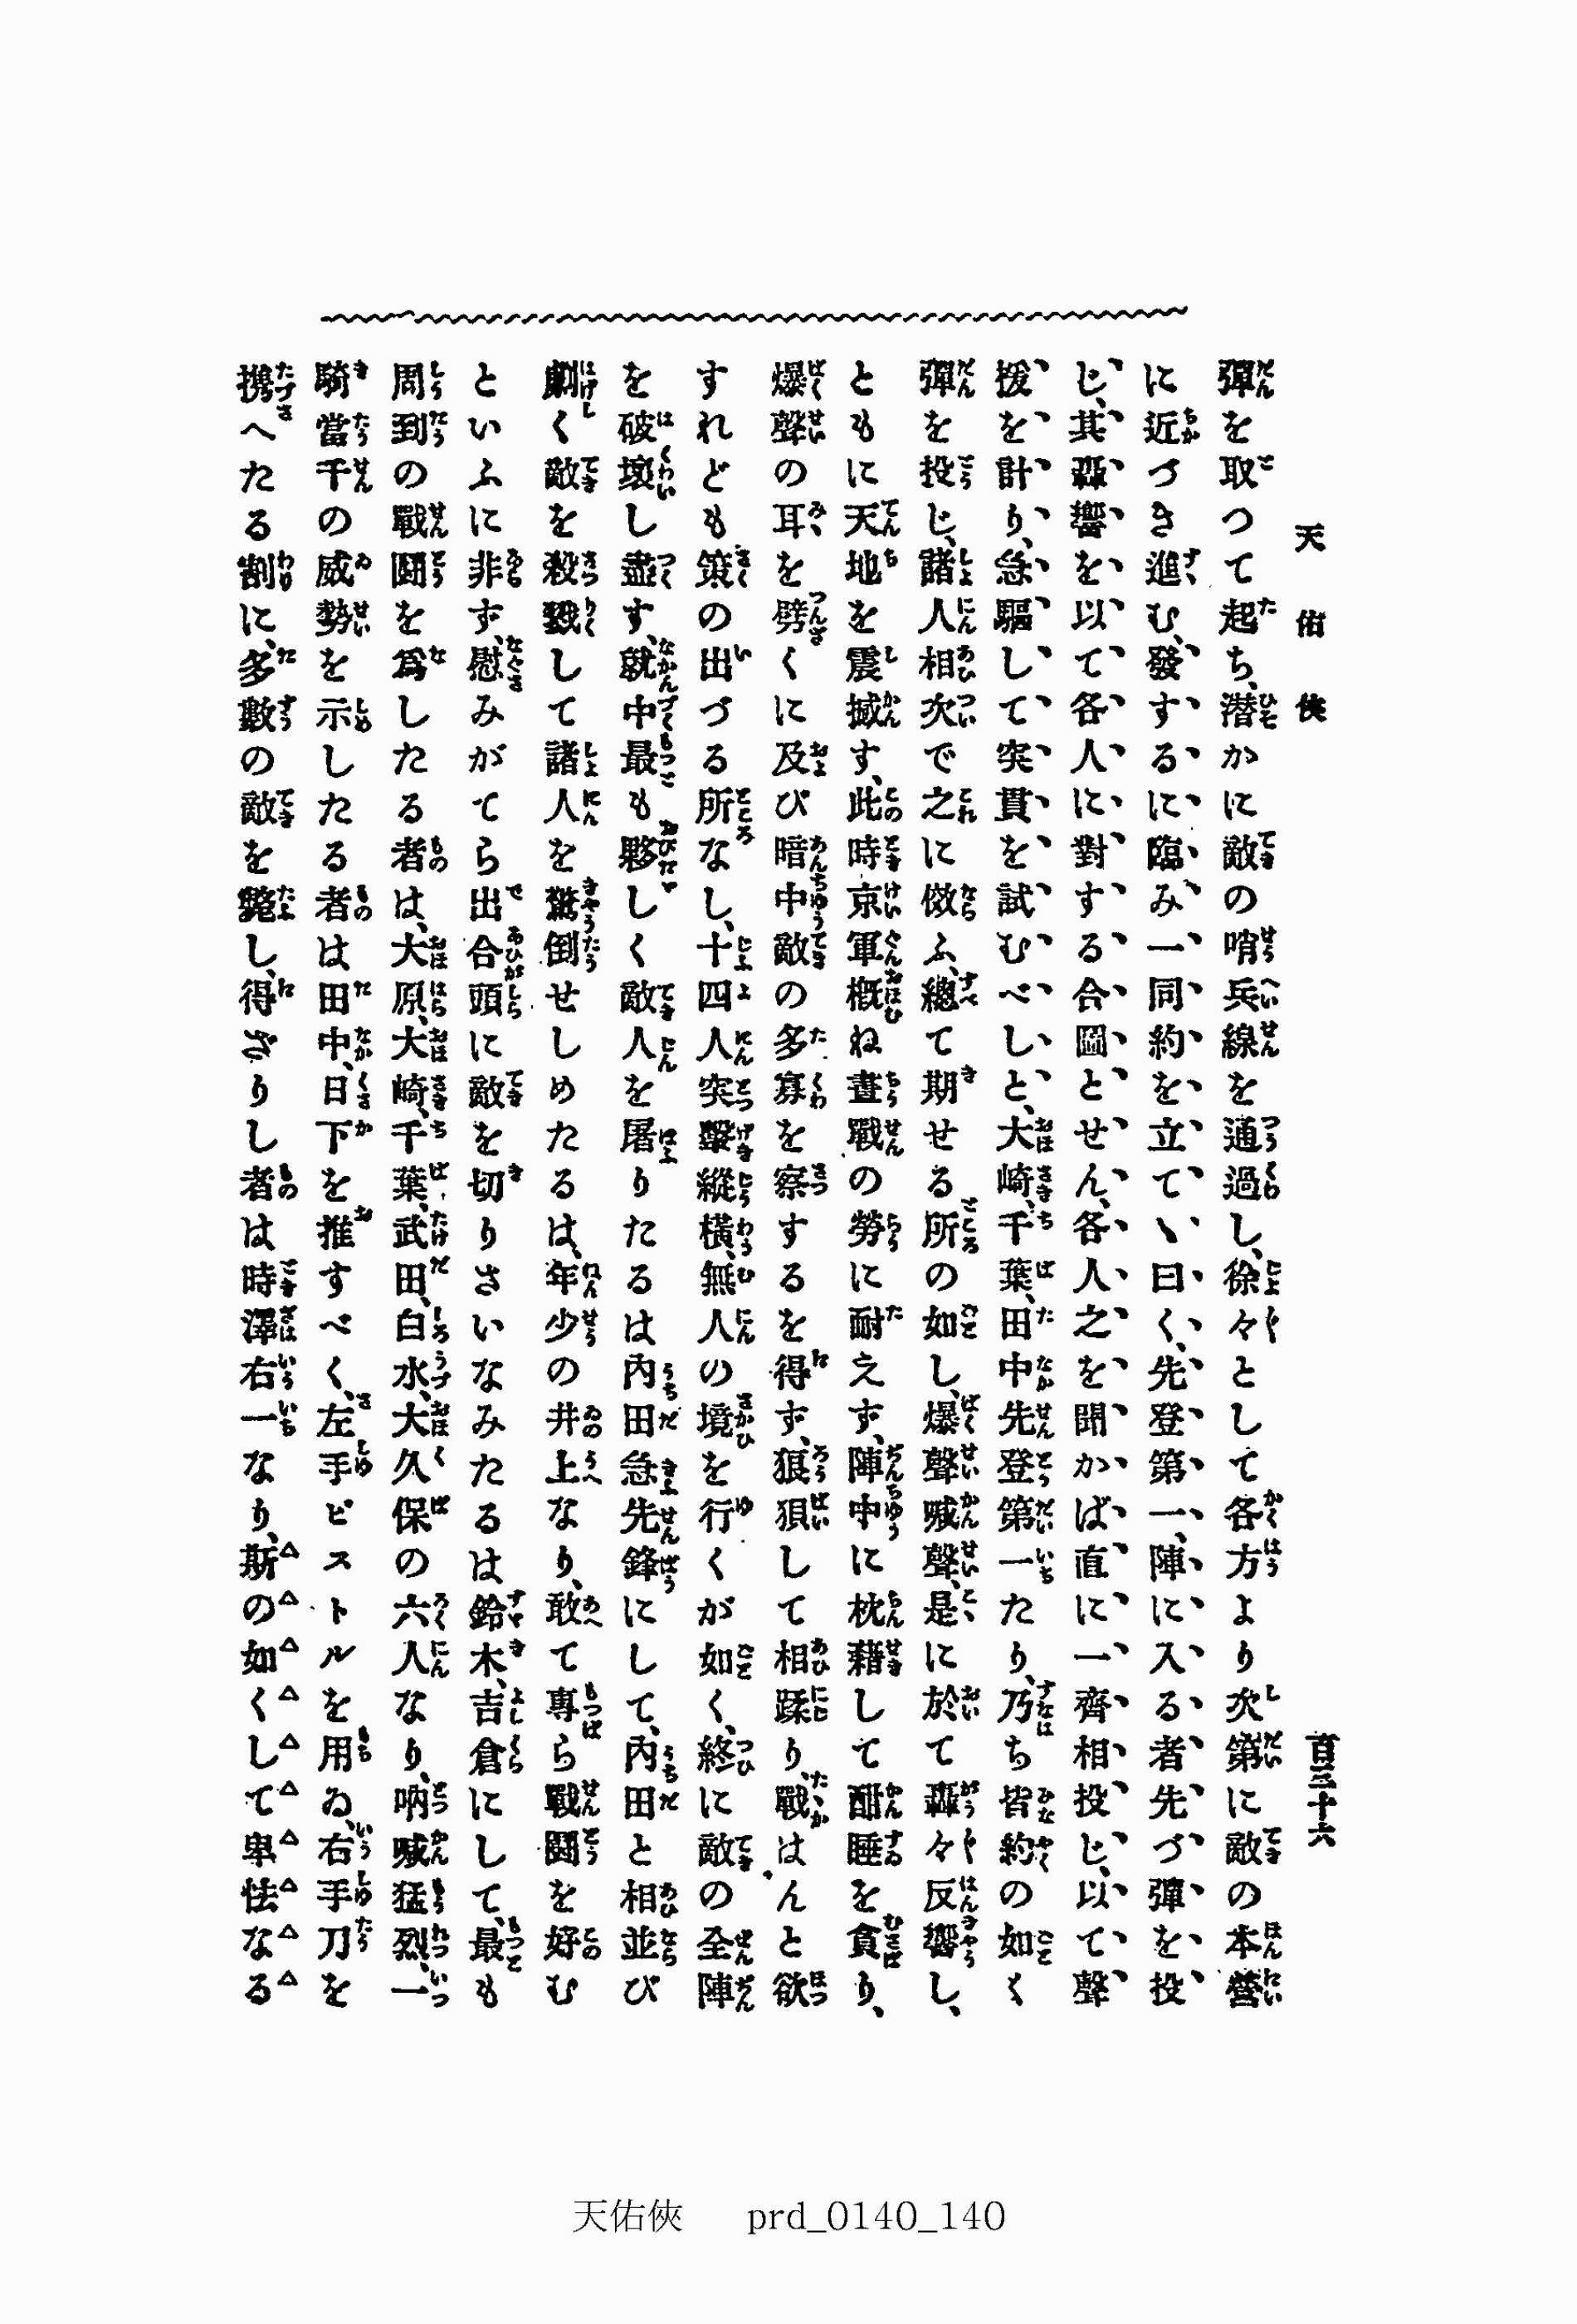 天佑俠
百三十六
彈を取つて起ち、潜かに敵の哨兵線を通過し、徐々として各方より次第に敵の本營
に近づき進む、發するに臨み一同約を立てゝ曰く、先登第一、陣に入る者先づ彈を投
じ、其轟響を以て各人に對する合圖とせん、各人之を聞かば直に一齊相投じ、以て聲
援を計り、急驅して突貫を試むべしと、大崎、千葉、田中先登第一たり、乃ち皆約の如く
彈を投じ、諸人相次で之に倣ふ、總て期せる所の如し、爆聲喊聲、是に於て轟々反響し、
ともに天地を震撼す、此時京軍概ね晝戰の勞に耐えず、陣中に枕藉して酣睡を貪り、
爆聲の耳を劈くに及び暗中敵の多寡を察するを得ず、狼狽して相蹂り、戰はんと欲
すれども策の出づる所なし、十四人突擊縱橫、無人の境を行くが如く、終に敵の全陣
を破壞し盡す、就中最も夥しく敵人を屠りたるは内田急先鋒にして、内田と相並び
劇く敵を殺戮して諸人を驚倒せしめたるは、年少の井上なり、敢て專ら戰鬪を好む
といふに非ず、慰みがてら出合頭に敵を切りさいなみたるは鈴木、吉倉にして、最も
周到の戰鬪を爲したる者は、大原、大崎、千葉、武田、白水、大久保の六人なり、吶喊猛烈、一
騎當千の威勢を示したる者は田中、日下を推すべく、左手ピストルを用ゐ、右手刀を
携へたる割に、多數の敵を斃し、得ざりし者は時澤右一なり、斯の如くして卑怯なる
天佑俠 prd_0140_140